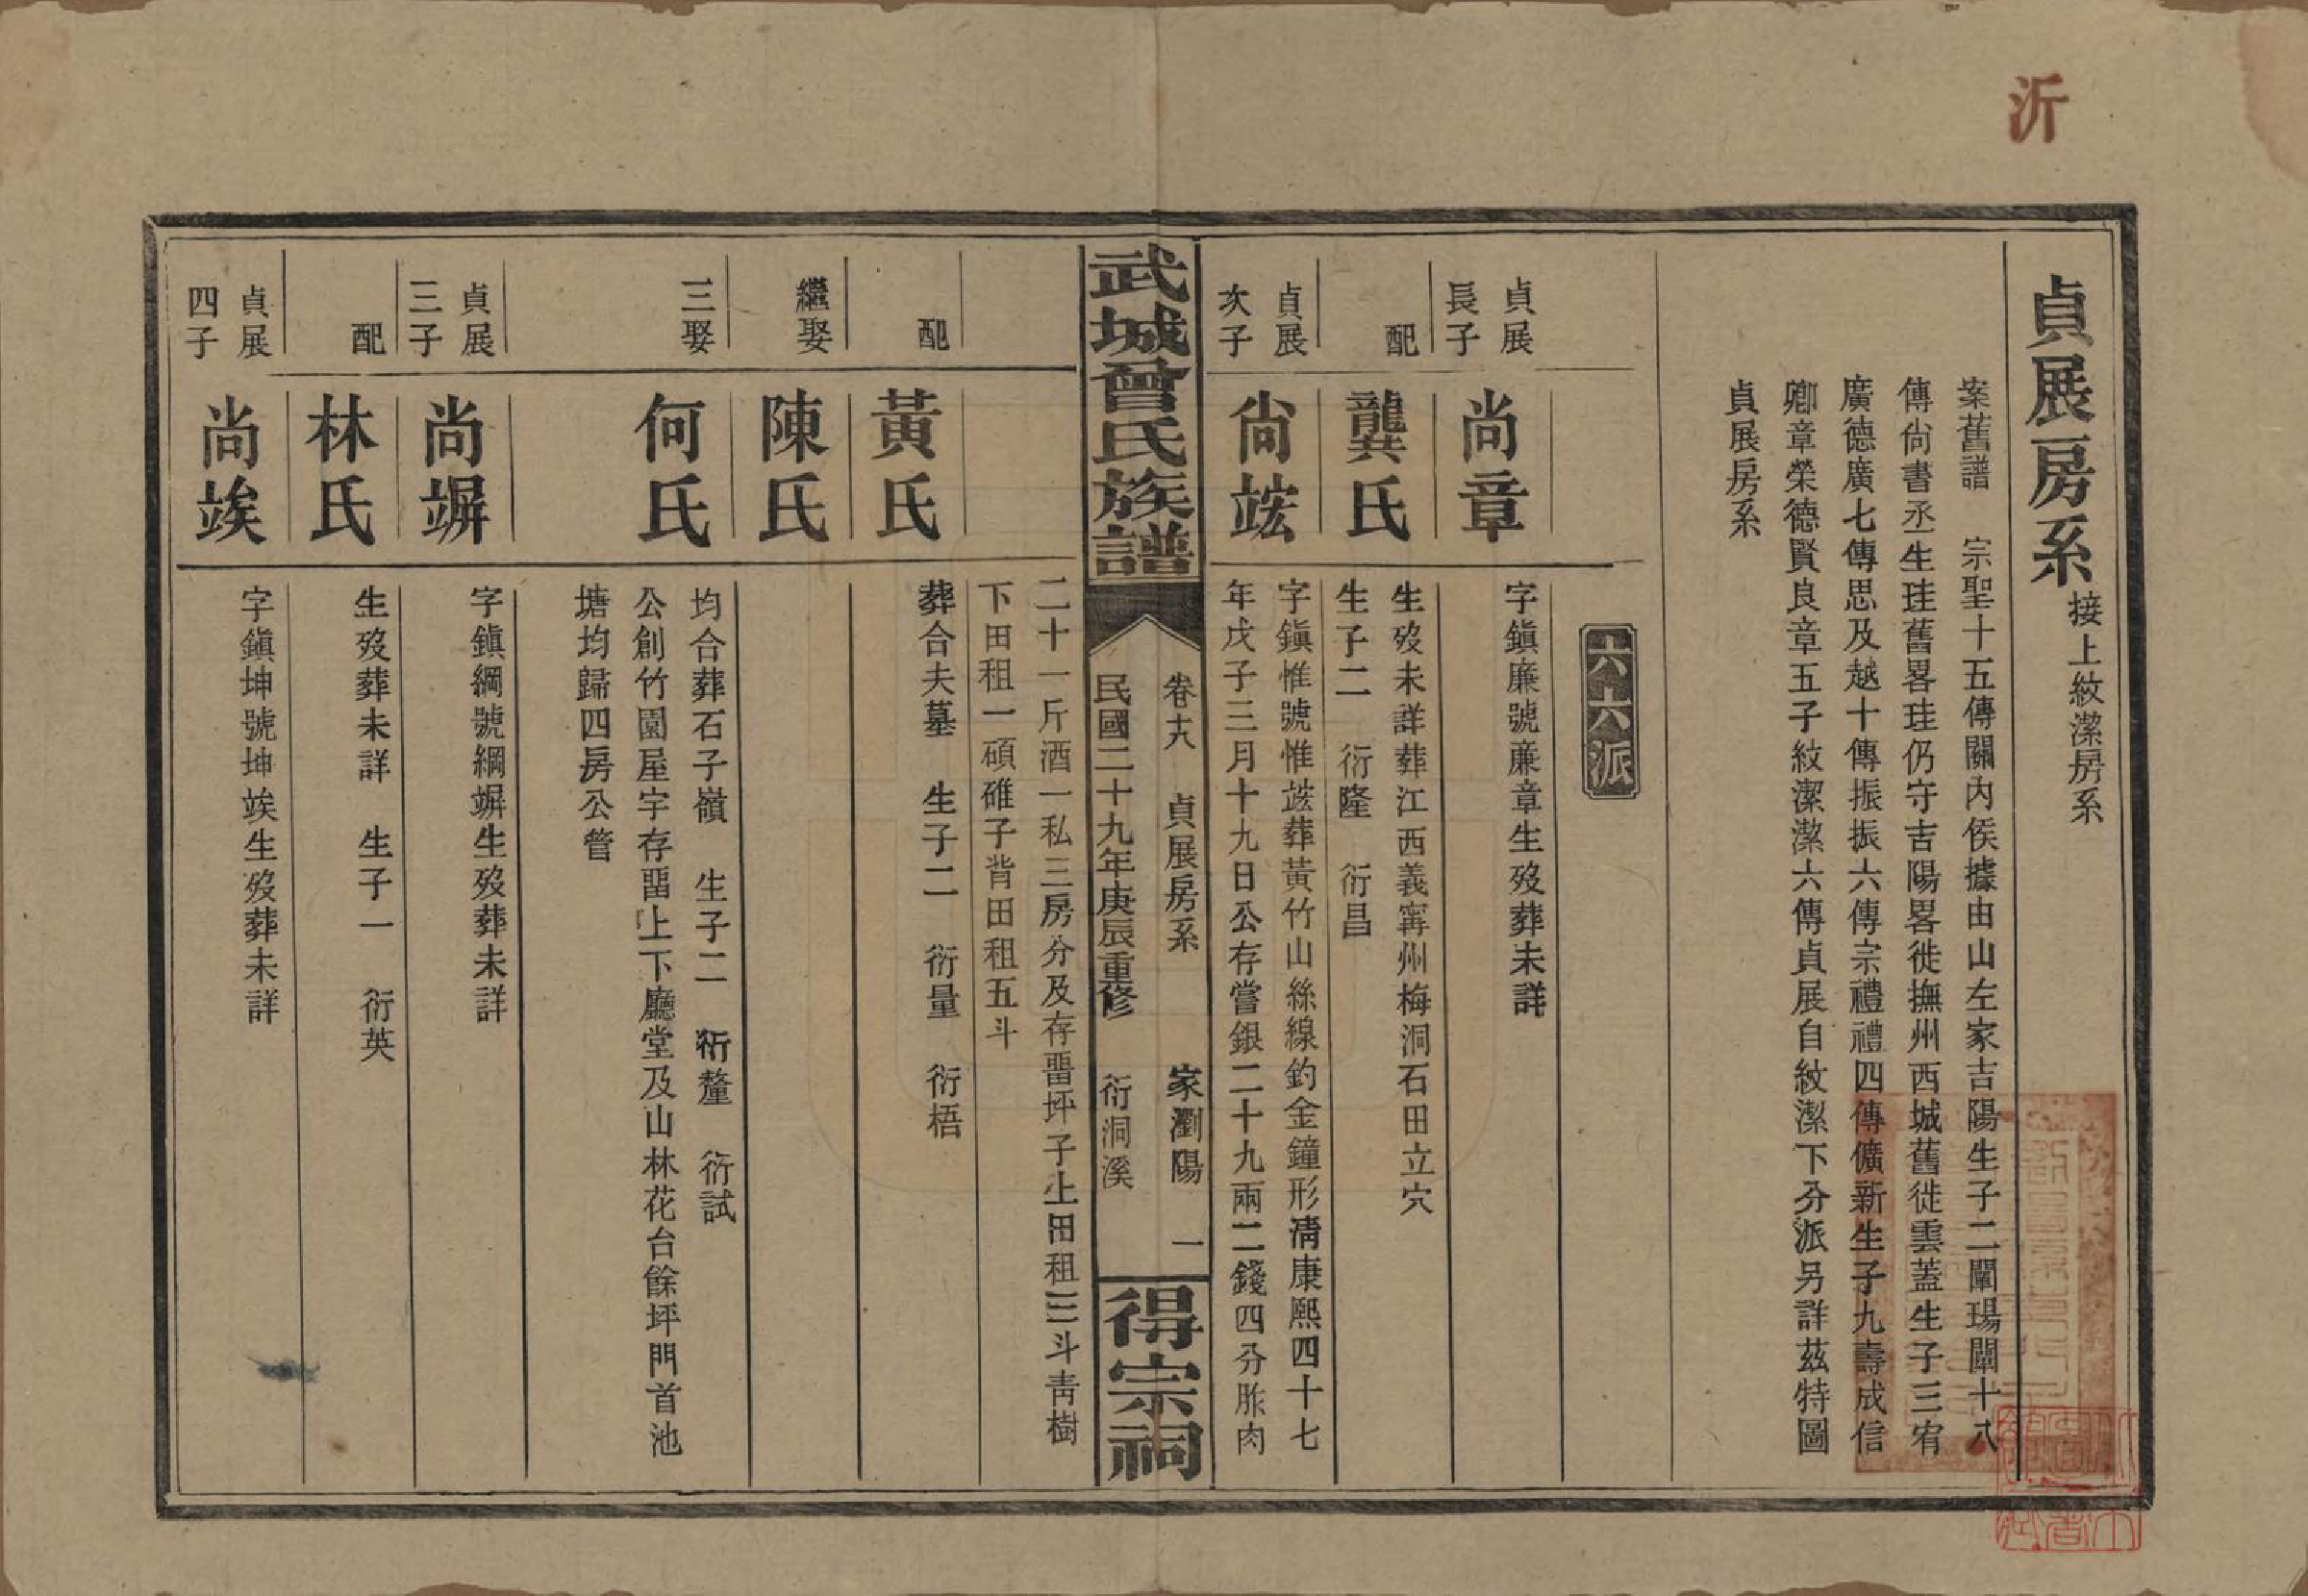 沂
貞展房系接上紋潔房系
案舊譜　宗聖十五傳關內侯據由山左家吉陽生子二闡瑒闡十八
傳尙書丞生珪舊畧珪仍守吉陽畧徙撫州西城舊徙雲蓋生子三宥
廣德廣七傳思及越十傳振振六傳宗禮禮四傳儣新生子九壽成信
卿章榮德賢良章五子紋潔潔六傳貞展自紋潔下分派另詳茲特圖
貞展房系
六六派
貞展長子
尚章
字鎭廉號廉章生歿葬未詳
配
龔氏
生歿未詳葬江西義寗州梅洞石田立穴
生子二　衍隆　衍昌
貞展次子
尙竑
字鎭惟號惟竑葬黃竹山絲線釣金鐘形淸康熙四十七
年戊子三月十九日公存嘗銀二十九兩二錢四分胙肉
武城曾氏族譜
卷十六　貞展房系　家瀏陽　一
民國二十九年庚辰重修　衍洞溪
得宗祠
二十一斤酒一私三房分及存畱坪子上田租三斗靑樹
下田租一碩碓子背田租五斗
配
黃氏
葬合夫墓　生子二　衍量　衍梧
繼娶
陳氏
三娶
何氏
均合葬石子嶺　生子二　衍釐　衍試
公創竹園屋宇存畱上下廳堂及山林花台餘坪門首池
塘均歸四房公管
貞展三子
尚竮
字鎭綱號綱竮生歿葬未詳
配
林氏
生歿葬未詳　生子一　衍英
貞展四子
尚竢
字鎭坤號坤竢生歿葬未詳